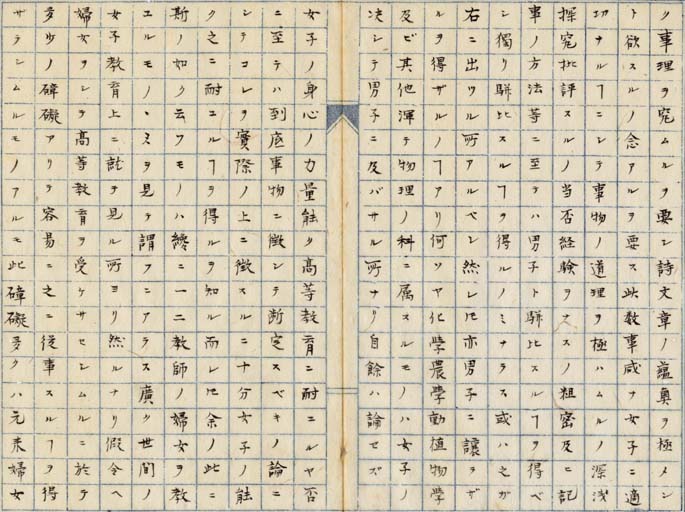 ク事理ヲ究ムルヲ要シ詩文章ノ蘊奥ヲ極メン
ト欲スルノ念アルヲ要ス此数事咸ナ女子ニ適
切ナルヿニシテ事物ノ道理ヲ極ハムルノ深浅
探究批評スルノ当否経験ヲナスノ粗密及ヒ記
事ノ方法等ニ至テハ男子ト駢比スルヿヲ得ベ
シ獨リ駢比スルヿヲ得ルノミナラス或ハ之ガ
右ニ出ツル所アルベシ然レ𪜈亦男子ニ讓ラザ
ルヲ得ザルノヿアリ何ソヤ化學農學動植物學
及ビ其他渾テ物理ノ科ニ属スルモノハ女子ノ
决シテ男子ニ及バサル所ナリ自餘ハ論セズ
女子ノ身心ノ力量能ク高等教育ニ耐ユルヤ否
ニ至テハ到底事物ニ徴シテ断定スベキノ論ニ
シテコレヲ實際ノ上ニ徴スルニ十分女子ノ能
ク之ニ耐ユルヿヲ得ルヲ知ル而レ𪜈余ノ此ニ
斯ノ如ク云フモノハ纔ニ一二教師ノ婦女ヲ教
ユルモノヽミヲ見テ謂フニアラス廣ク世間ノ
女子教育上ニ就テ見ル所ヨリ然ルナリ假令ヘ
婦女ヲシテ高等教育ヲ受ケサセシムルニ於テ
多少ノ碍礙アリテ容易ニ之ニ従事スルヿヲ得
サラシムルモノアルモ此碍礙多クハ元来婦女